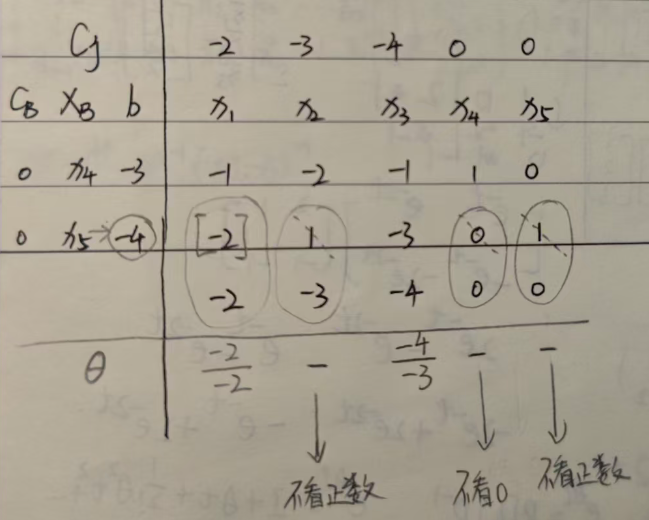 Cj -2 -3 -4 0 0
CB XB b x1 x2 x3 x4 x5
0 x4 -3 -1 -2 -1 1 0
0 x5 → -4 [-2] 1 -3 0 1
-2 -3 -4 0 0
θ -2/-2 - -4/-3 - -
不看正数 不看0 不看正数